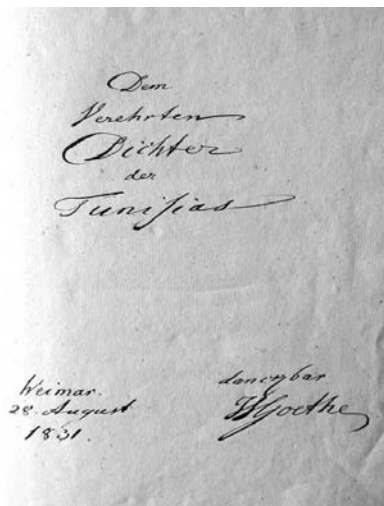 Dem
Verehrten
Dichter
der
Tuniſias
Weimar.
28. August
1831.
danckbar
JWGoethe